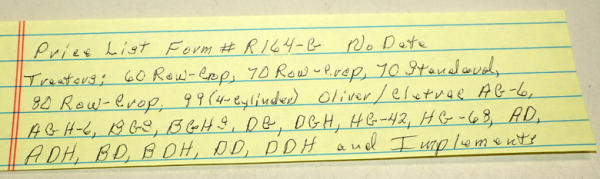 Price List Form # R164-G No Date
Tractors; 60 Row-Crop, 70 Row-Crop, 70 Standard,
80 Row-Crop, 99 (4-cylinder) Oliver/Cletrac AG-6,
AGH-6, BGS, BGHS, DG, DGH, HG-42, HG-68, AD,
ADH, BD, BDH, DD, DDH and Implements